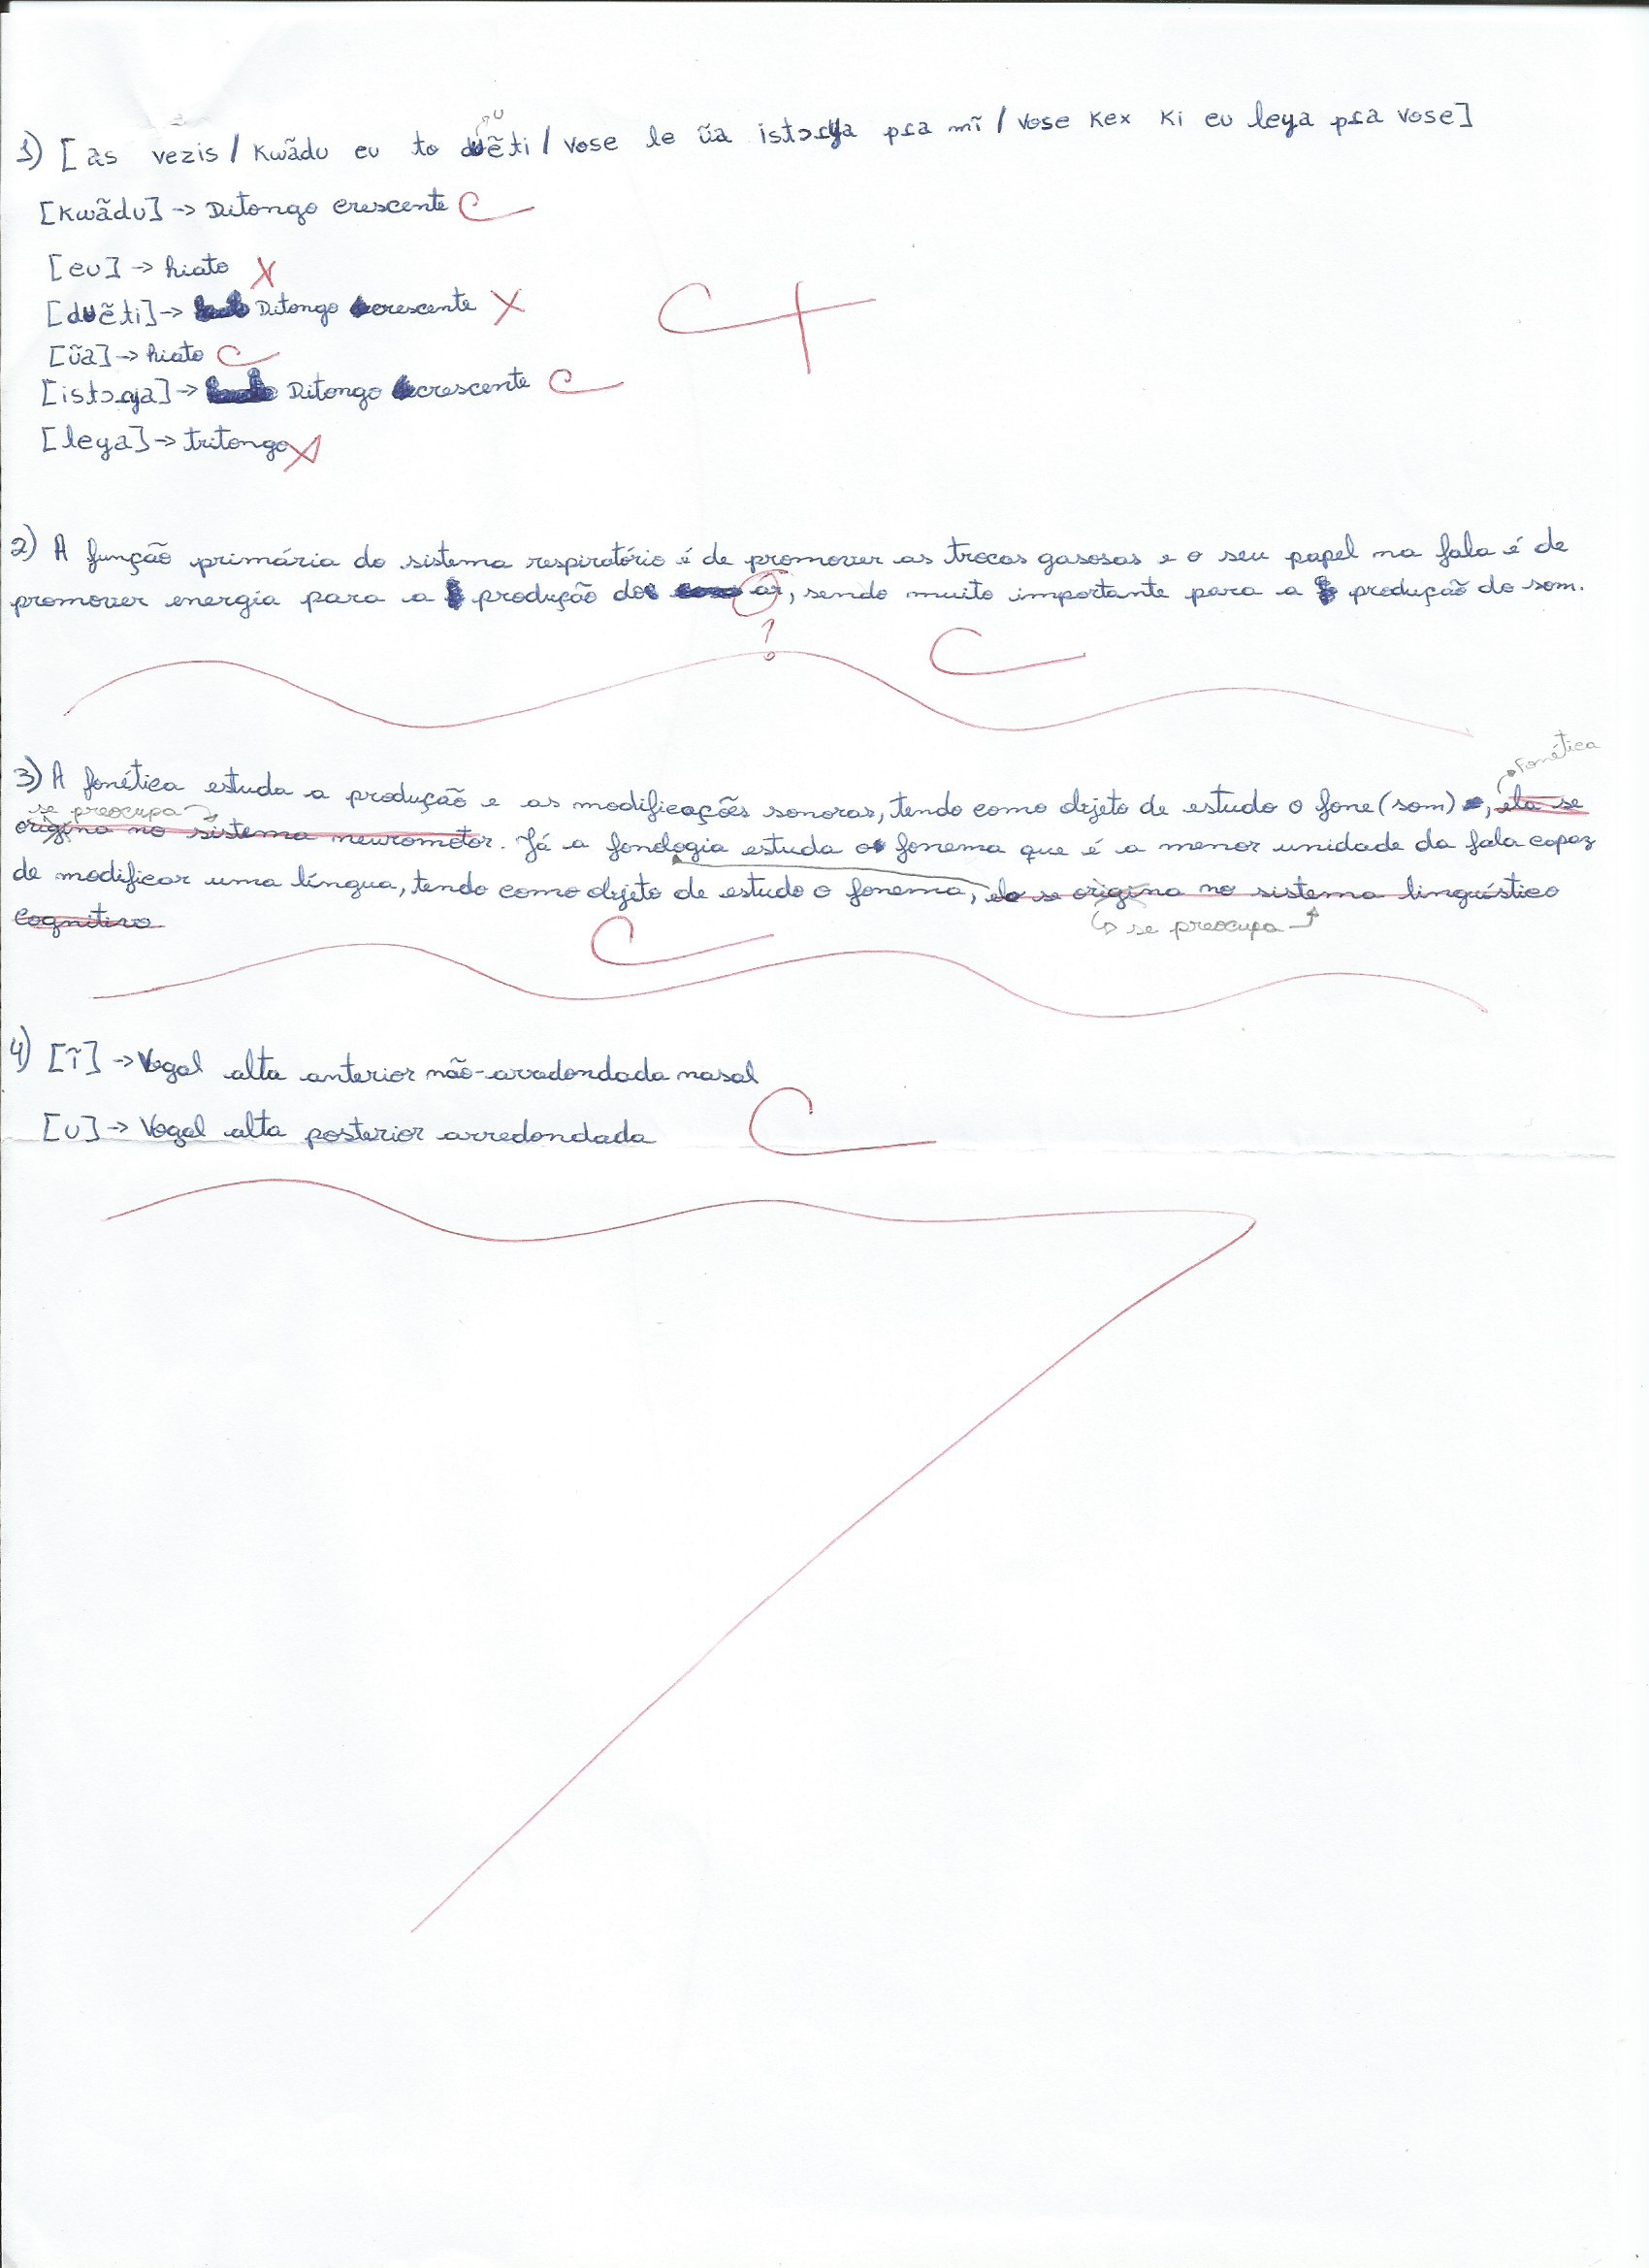 1) [as vezis / kwãdu eu to duẽti / vose le ũa istɔɾya pɾa mĩ / vose kex ki eu leya pɾa vose]
u
[kwãdu] -> Ditongo crescente C
[eu] -> hiato X
[duẽti] -> Ditongo crescente X
[ũa] -> hiato C
[istɔɾya] -> Ditongo crescente C
[leya] -> tritongo X
2) A função primária do sistema respiratório é de promover as trocas gasosas e o seu papel na fala é de
promover energia para a produção do ar, sendo muito importante para a produção do som.
?
C
Fonética
3) A fonética estuda a produção e as modificações sonoras, tendo como objeto de estudo o fone (som), ela se
se preocupa
origina no sistema neuromotor. Já a fonologia estuda o fonema que é a menor unidade da fala capaz
de modificar uma língua, tendo como objeto de estudo o fonema, ela se origina no sistema linguístico
↳ se preocupa
cognitivo.
C
4) [ĩ] -> Vogal alta anterior não-arredondada nasal
[u] -> Vogal alta posterior arredondada
C